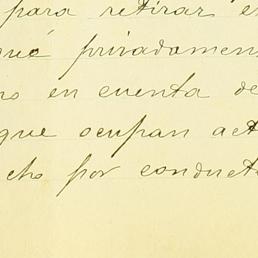 para retirar e
qué privadamen
en cuenta de
que ocupan act
cho por conduct